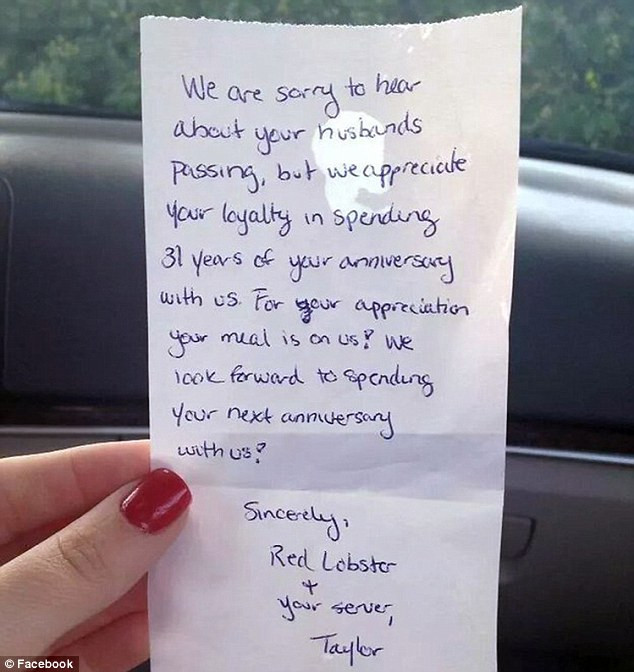 We are sorry to hear
about your husbands
passing, but we appreciate
your loyalty in spending
31 years of your anniversary
with us. For your appreciation
your meal is on us! We
look forward to spending
your next anniversary
with us!
Sincerely,
Red Lobster
+
your server,
Taylor
© Facebook